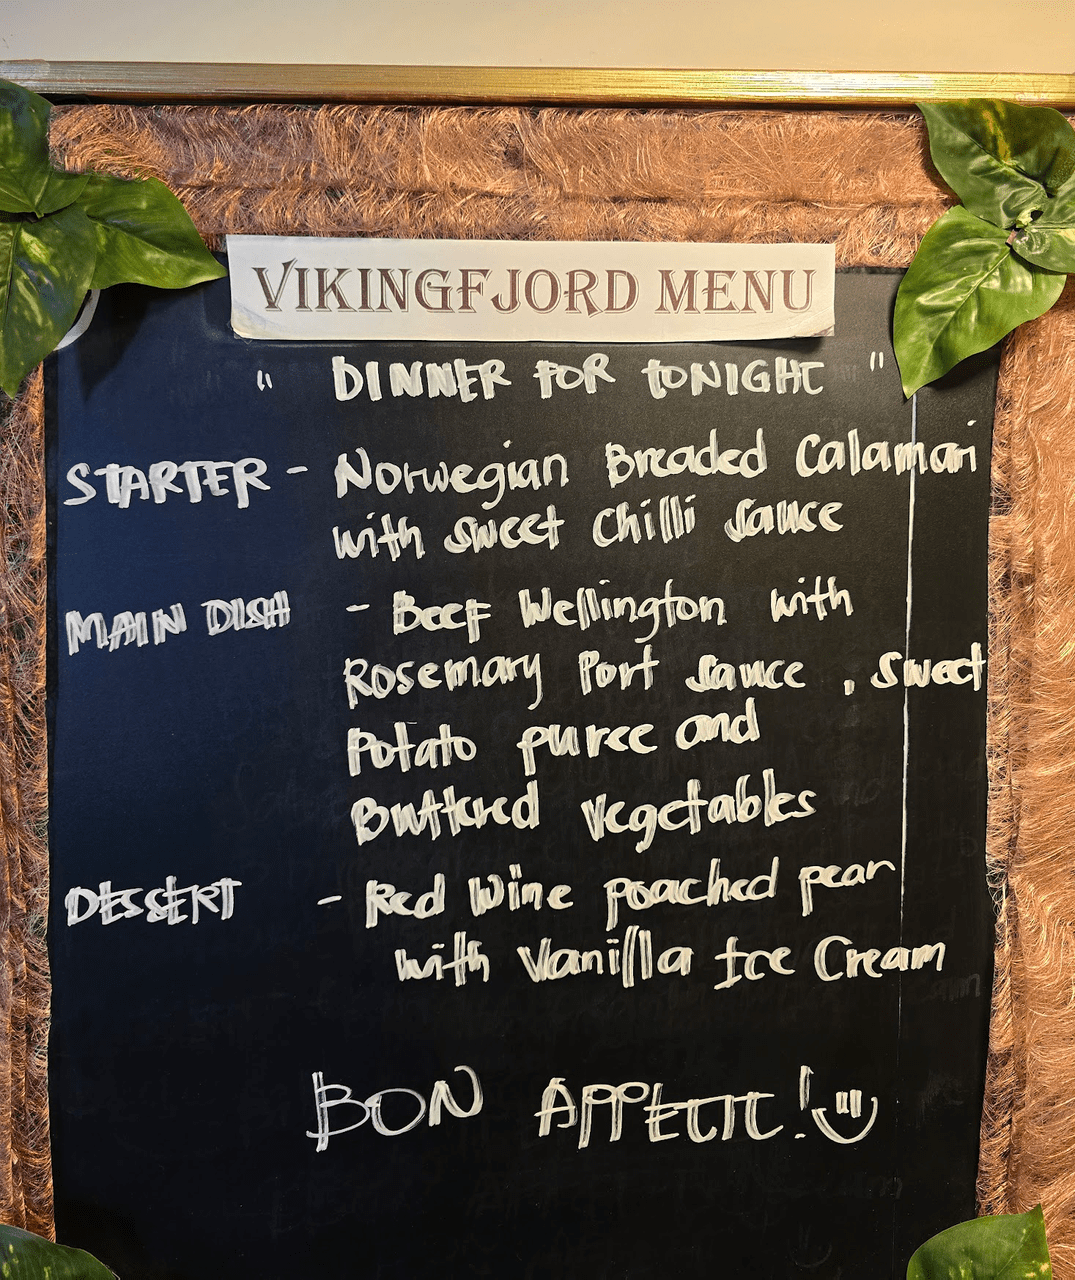 VIKINGFJORD MENU
" DINNER FOR tONIGHt "
STARTER - Norwegian Breaded Calamari
with sweet Chilli sauce
MAIN DISH - Beef Wellington with
Rosemary Port sauce , sweet
Potato puree and
Buttered vegetables
DESSERT - Red Wine poached pear
with Vanilla Ice Cream
BON APPETIT!